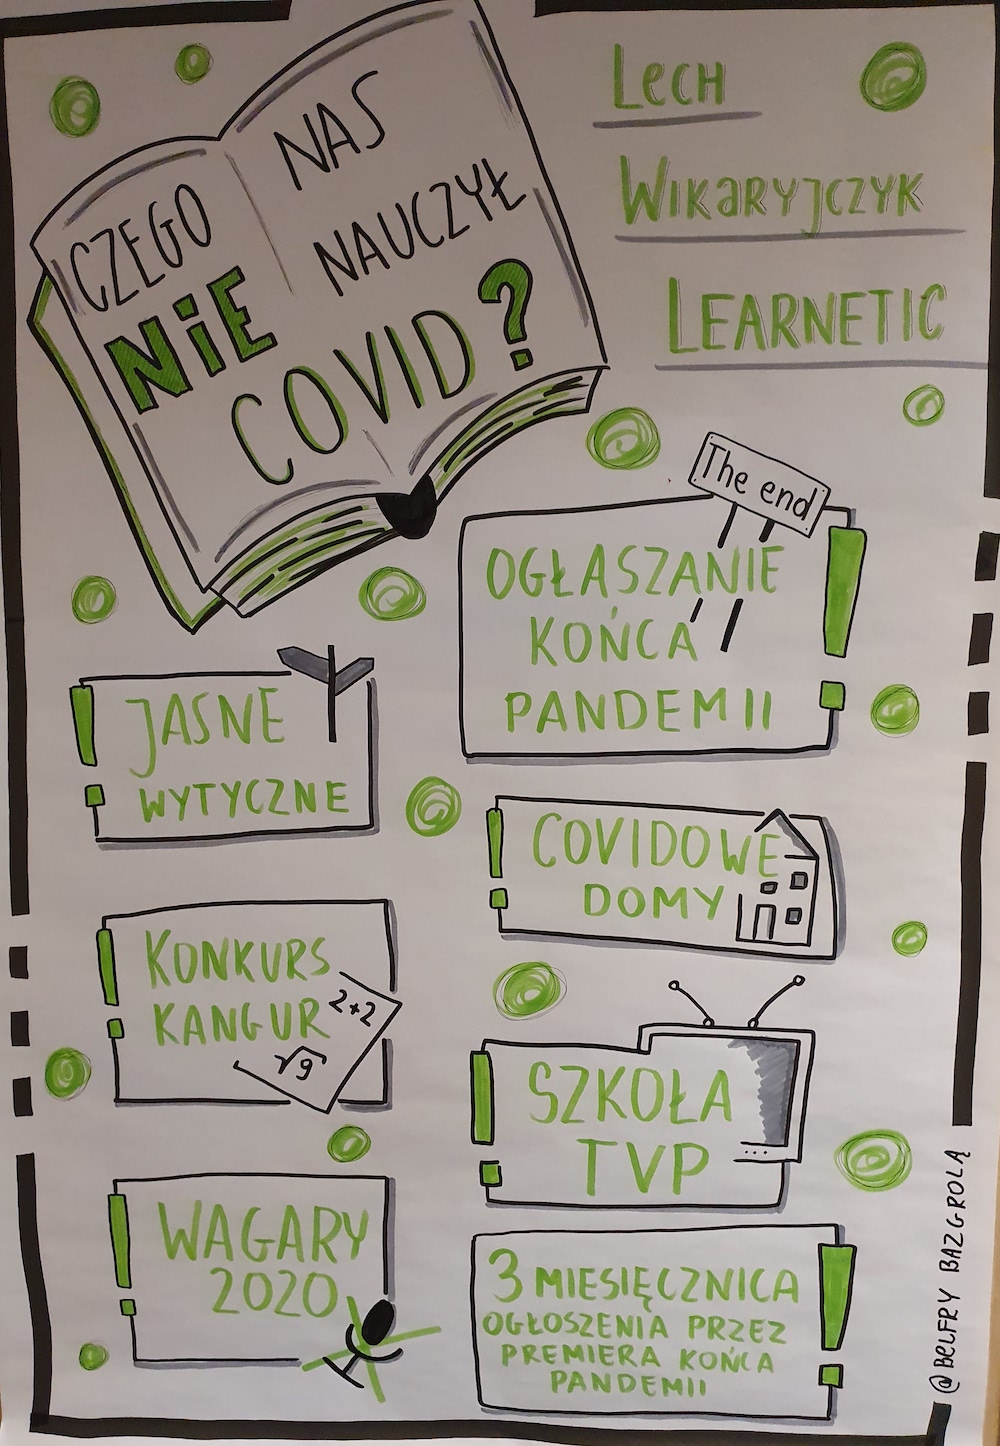 CZEGO
NIE
NAS
NAUCZYŁ
COVID?
LECH
WIKARYJCZYK
LEARNETIC
The end
OGŁASZANIE
KOŃCA
PANDEMII
JASNE
WYTYCZNE
COVIDOWE
DOMY
KONKURS
KANGUR
2+2
√9
SZKOŁA
TVP
WAGARY
2020
3 MIESIĘCZNICA
OGŁOSZENIA PRZEZ
PREMIERA KOŃCA
PANDEMII
@BELFRY BAZGROLĄ